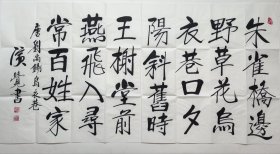 朱雀橋邊
野草花烏
衣巷口夕
陽斜舊時
王榭堂前
燕飛入尋
常百姓家
唐劉禹錫烏衣巷
演覺書